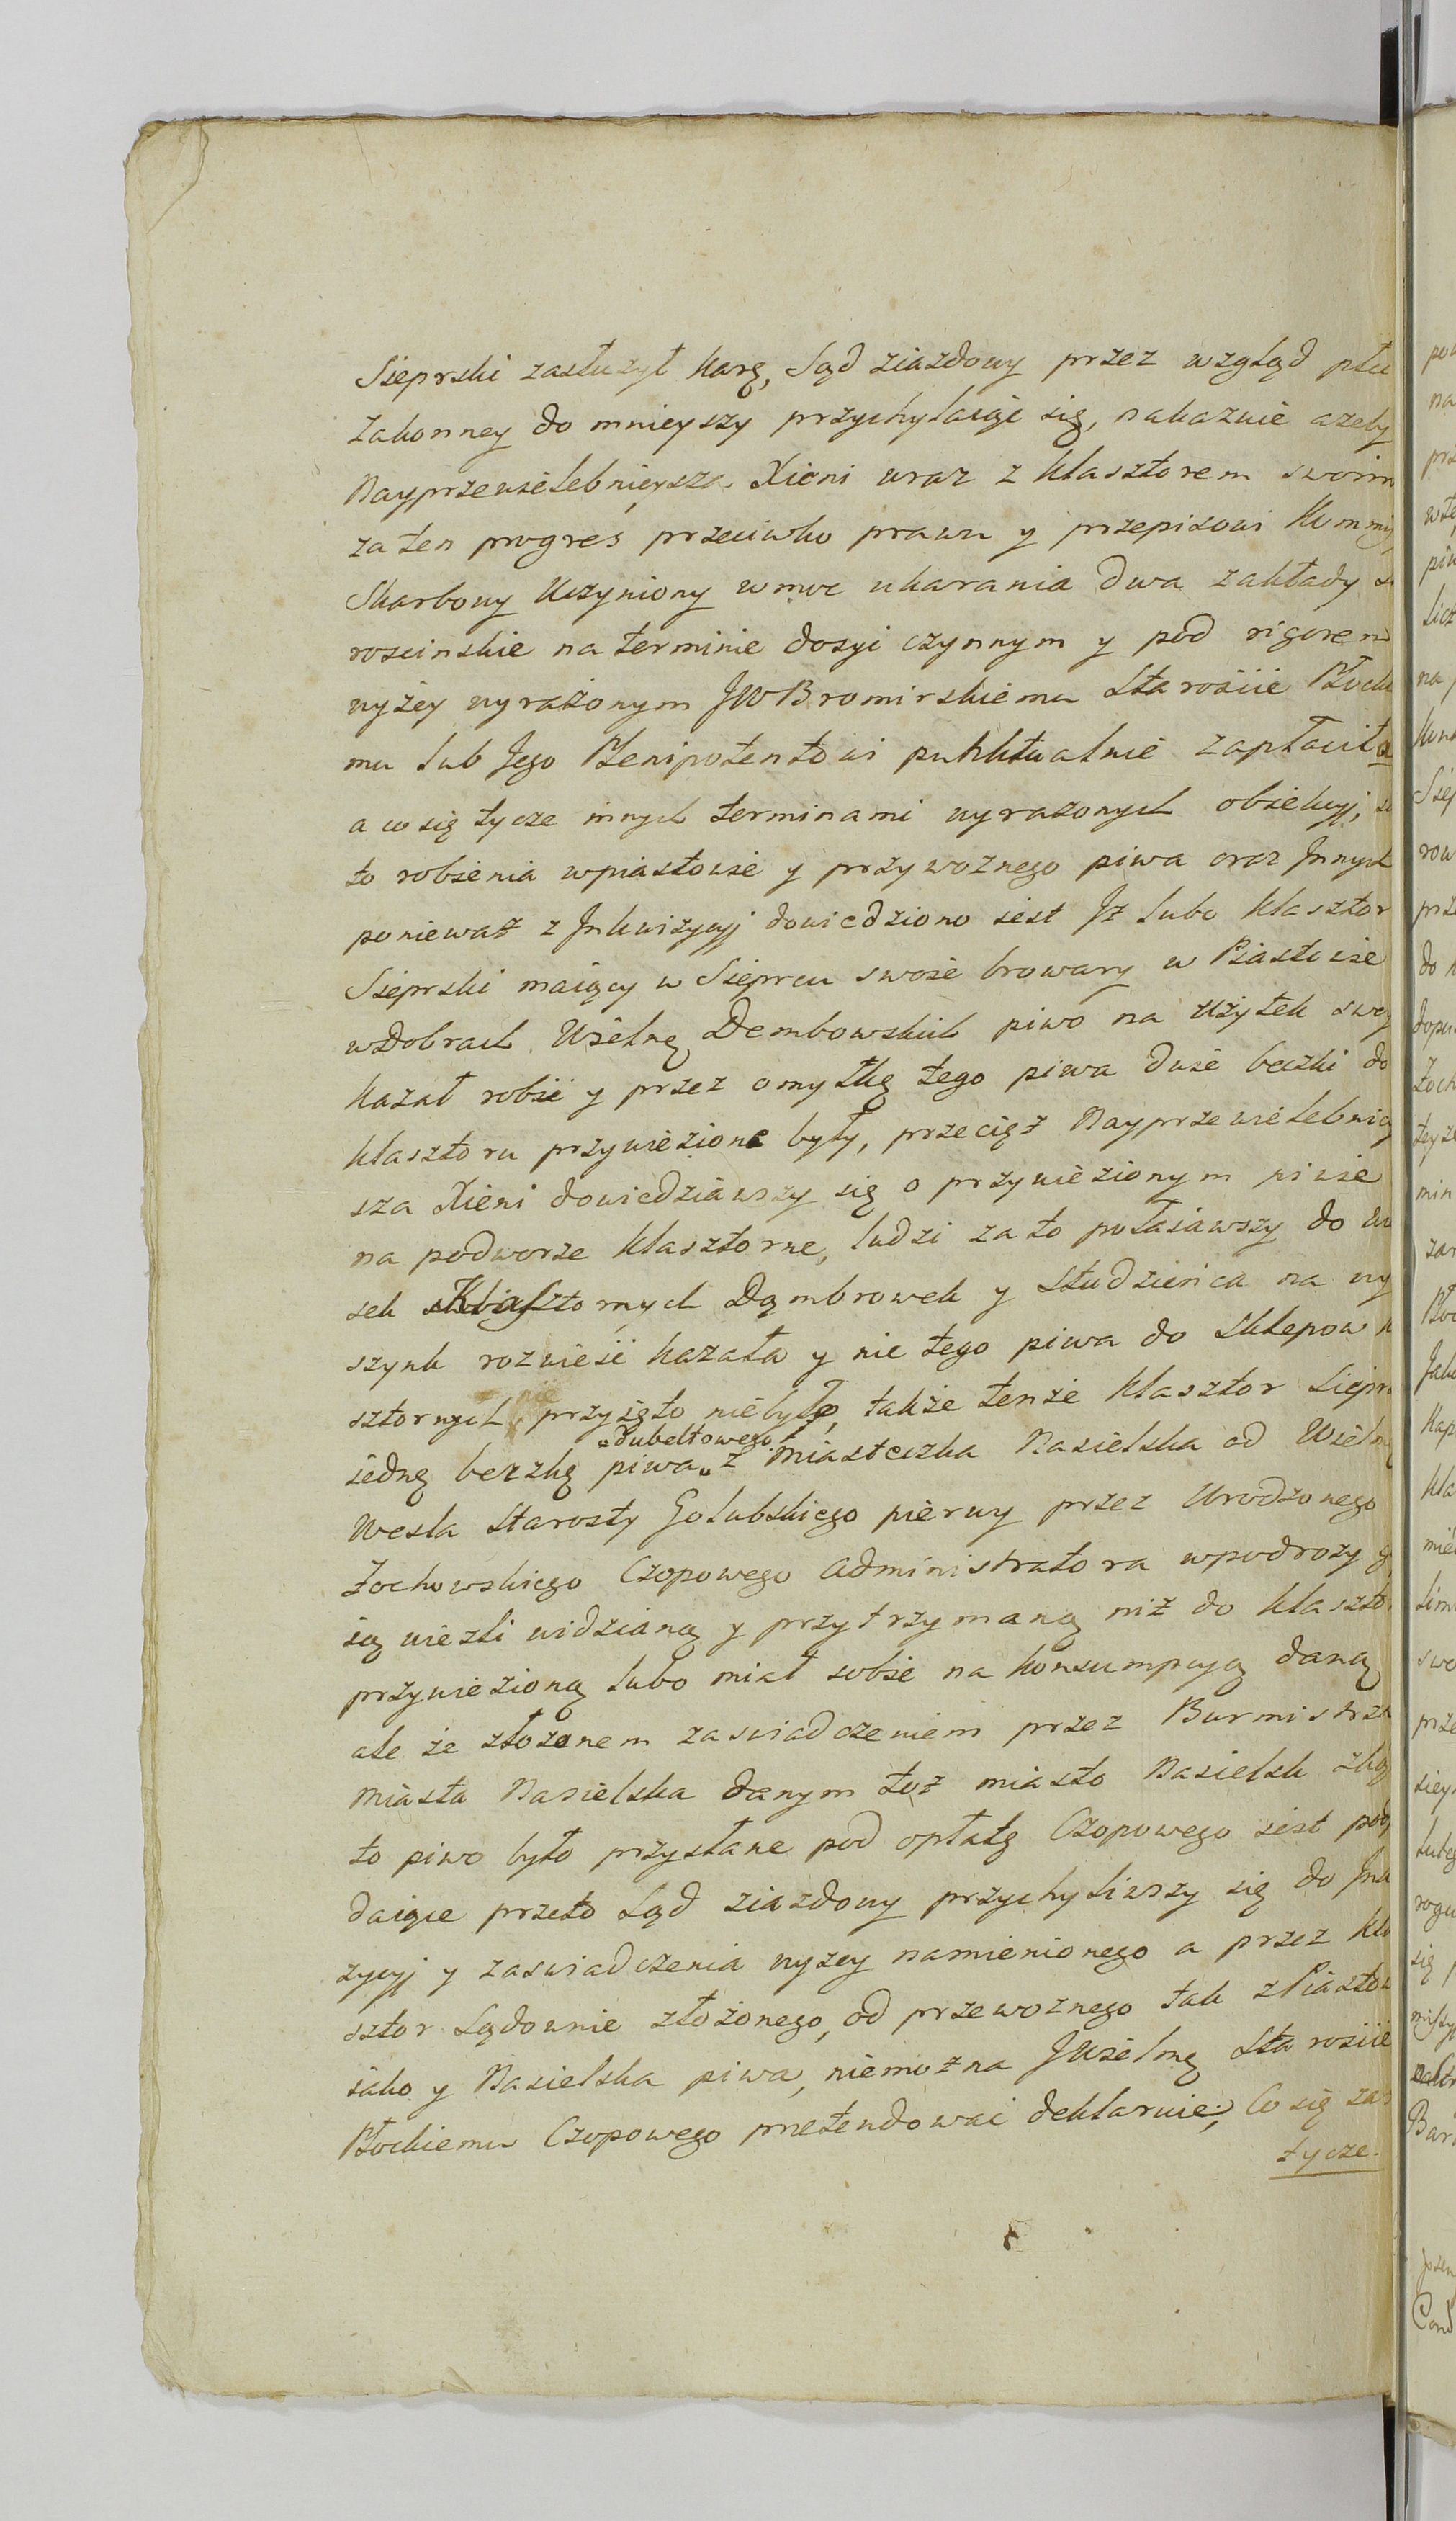 Sieprski zasłużył karę, Sąd ziazdowy przez wzgląd płu
Zakonney do mnieyszy przychylaiąc się, nakazuie azeby
Nayprzewielebnieysza Xieni wraz z klasztorem swoim
za ten progres przeciwko prawu y przepisowi Kommis
Skarbowy uczyniony w moc ukarania dwa zakłady s
roscinskie na terminie dosyć czynnym y pod rigorem
wyżey wyrażonym JW Bromirskiemu Staroscie Płocki
mu lub Jego Plenipotentowi punktualnie zapłaciła
a co się tycze innych terminami wyrażonych obiekcyj,
to robienia w piastowie y przywoznego piwa oraz Jnnych
ponieważ z Jnkwizycyj dowiedziono iest Jż lubo klasztor
Sieprski maiący w Sieprcu swoie browary w Piastowie
w Dobrach Wielnę Dembowskich piwo na użytek swoy
kazał robić y przez omyłkę tego piwa dwie beczki do
klasztoru przywiezione były, przecięż Nayprzewielebniey
sza Xieni dowiedziawszy się o przywiezionym piwie
na podworze klasztorne, ludzi za to połaiawszy do w
sek Klasztornych Dąmbrowek y Studzieńca na wy
szynk rozwieść kazała y nie tego piwa do sklepow k
sztornych przyięto niebyło, także tenże klasztor Siepr
iedną beczkę piwa „dubeltowego„ z Miasteczka Nasielska od Wielm
Wesla Starosty Golubskiego pierwy przez Urodzonego
Żochowskiego Czopowego Administratora w podrozy g
ią wiezli widzianą y przytrzymaną niż do klaszto
przywiezioną lubo miał sobie na konsumpcyą daną
ale że złożonem zaswiadczeniem przez Burmistrza
Miasta Nasielska danym toż miasto Nasielsk zkąd
to piwo było przysłane pod opłatę Czopowego iest pod
daiące przeto Sąd ziazdowy przychyliwszy się do Jnk
zycyj y zaswiadczenia wyzey namienionego a przez kla
sztor Sądownie złożonego, od przewoznego tak z Piastow
iako y Nasielska piwa, niemożna JWielmę Staroscie
Płockiemu Czopowego pretendować deklaruie; Co się zas
tycze.